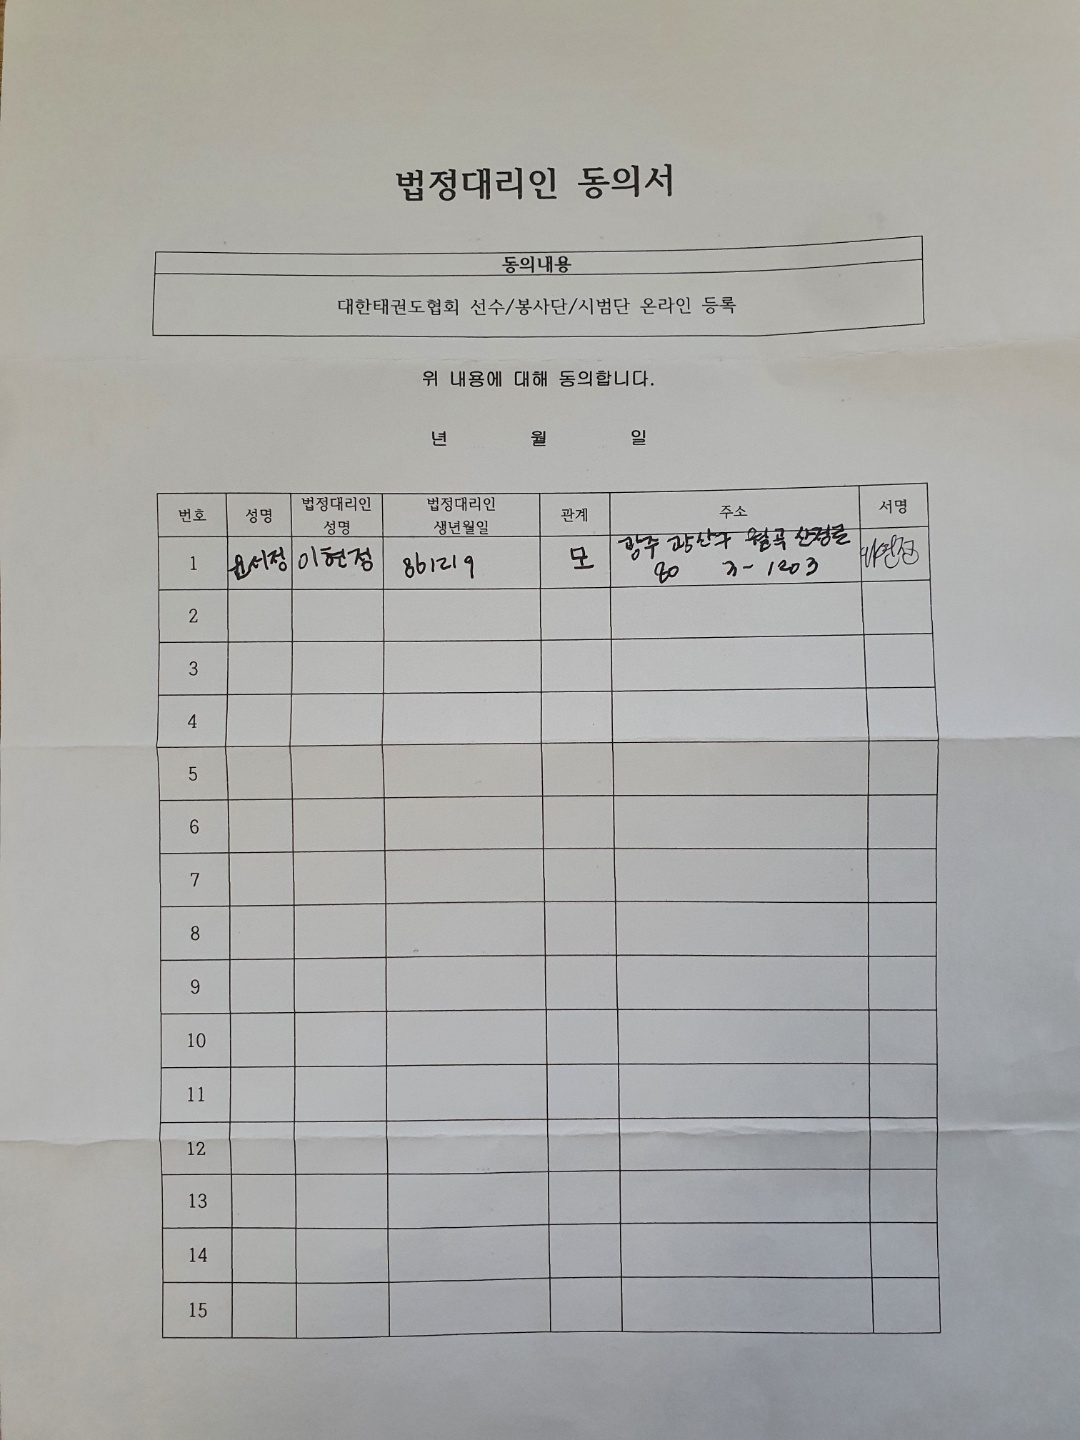 법정대리인 동의서
동의내용
대한태권도협회 선수/봉사단/시범단 온라인 등록
위 내용에 대해 동의합니다.
년 월 일
번호 성명 법정대리인 성명 법정대리인 생년월일 관계 주소 서명
1 윤서정 이현정 861219 모 광주 광산구 월곡 산정로
80 3-1203
2
3
4
5
6
7
8
9
10
11
12
13
14
15